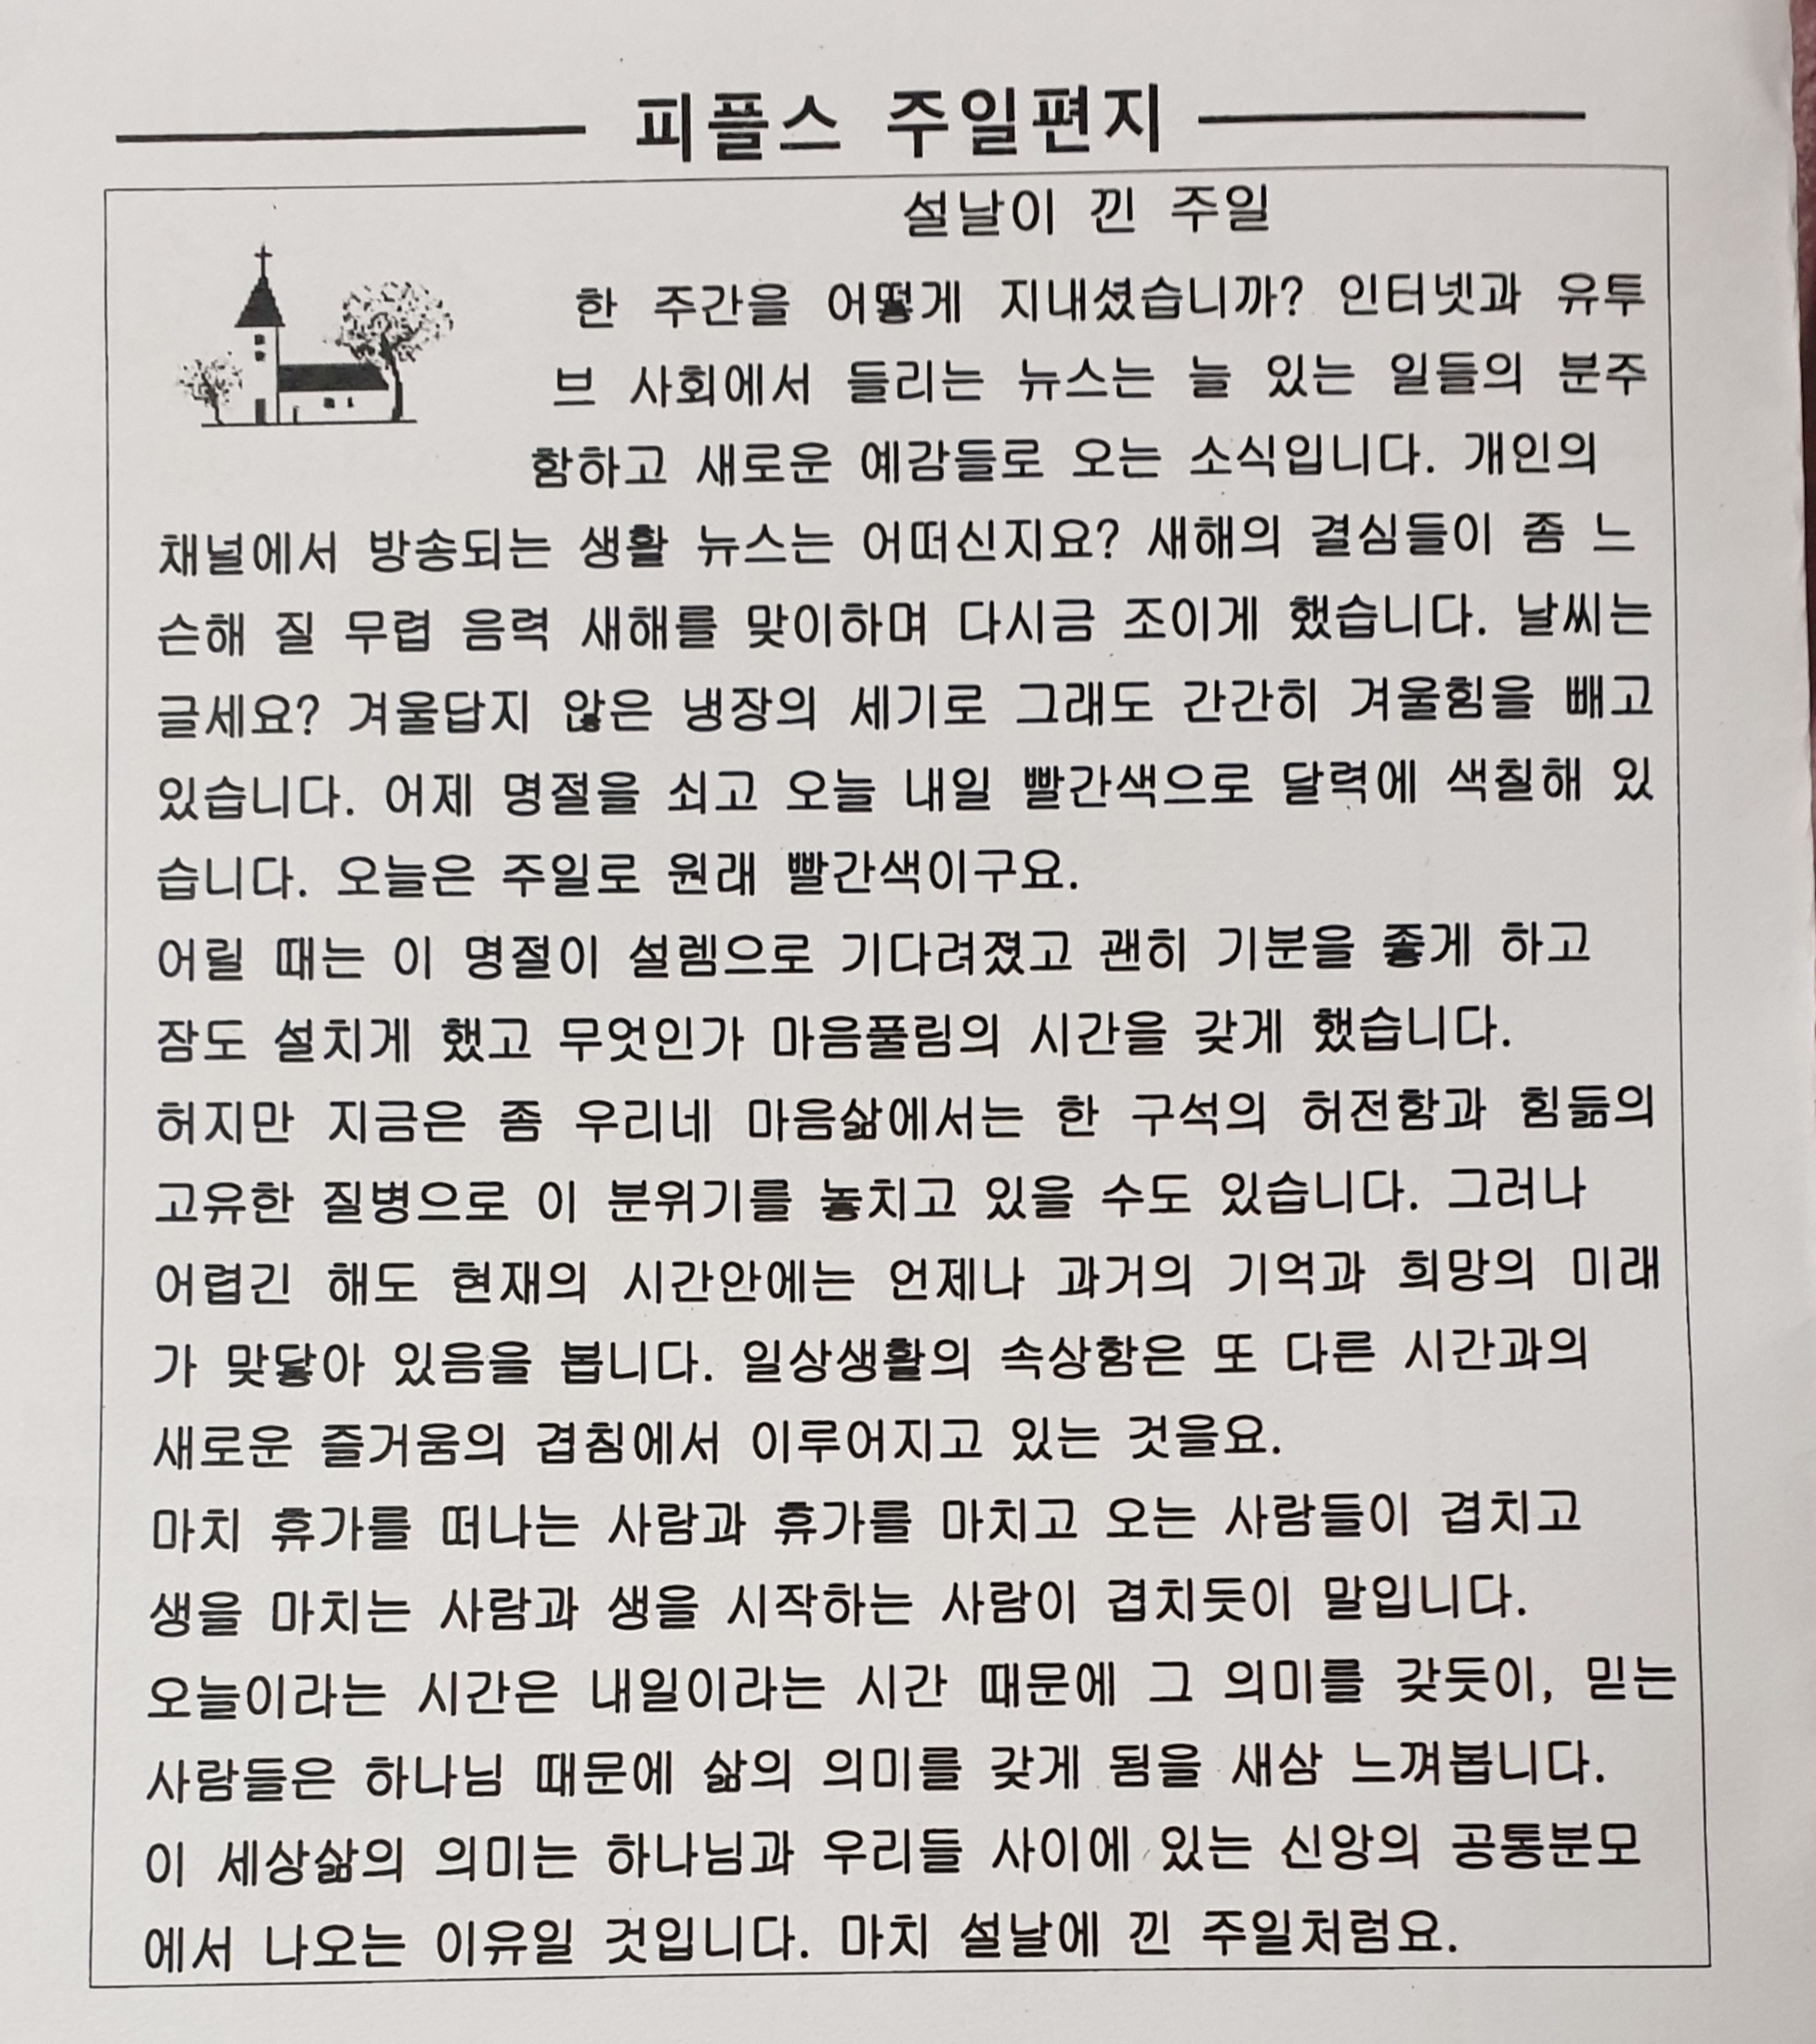 피플스 주일편지
설날이 낀 주일
한 주간을 어떻게 지내셨습니까? 인터넷과 유투
브 사회에서 들리는 뉴스는 늘 있는 일들의 분주
함하고 새로운 예감들로 오는 소식입니다. 개인의
채널에서 방송되는 생활 뉴스는 어떠신지요? 새해의 결심들이 좀 느
슨해 질 무렵 음력 새해를 맞이하며 다시금 조이게 했습니다. 날씨는
글세요? 겨울답지 않은 냉장의 세기로 그래도 간간히 겨울힘을 빼고
있습니다. 어제 명절을 쇠고 오늘 내일 빨간색으로 달력에 색칠해 있
습니다. 오늘은 주일로 원래 빨간색이구요.
어릴 때는 이 명절이 설렘으로 기다려졌고 괜히 기분을 좋게 하고
잠도 설치게 했고 무엇인가 마음풀림의 시간을 갖게 했습니다.
허지만 지금은 좀 우리네 마음삶에서는 한 구석의 허전함과 힘듦의
고유한 질병으로 이 분위기를 놓치고 있을 수도 있습니다. 그러나
어렵긴 해도 현재의 시간안에는 언제나 과거의 기억과 희망의 미래
가 맞닿아 있음을 봅니다. 일상생활의 속상함은 또 다른 시간과의
새로운 즐거움의 겹침에서 이루어지고 있는 것을요.
마치 휴가를 떠나는 사람과 휴가를 마치고 오는 사람들이 겹치고
생을 마치는 사람과 생을 시작하는 사람이 겹치듯이 말입니다.
오늘이라는 시간은 내일이라는 시간 때문에 그 의미를 갖듯이, 믿는
사람들은 하나님 때문에 삶의 의미를 갖게 됨을 새삼 느껴봅니다.
이 세상삶의 의미는 하나님과 우리들 사이에 있는 신앙의 공통분모
에서 나오는 이유일 것입니다. 마치 설날에 낀 주일처럼요.